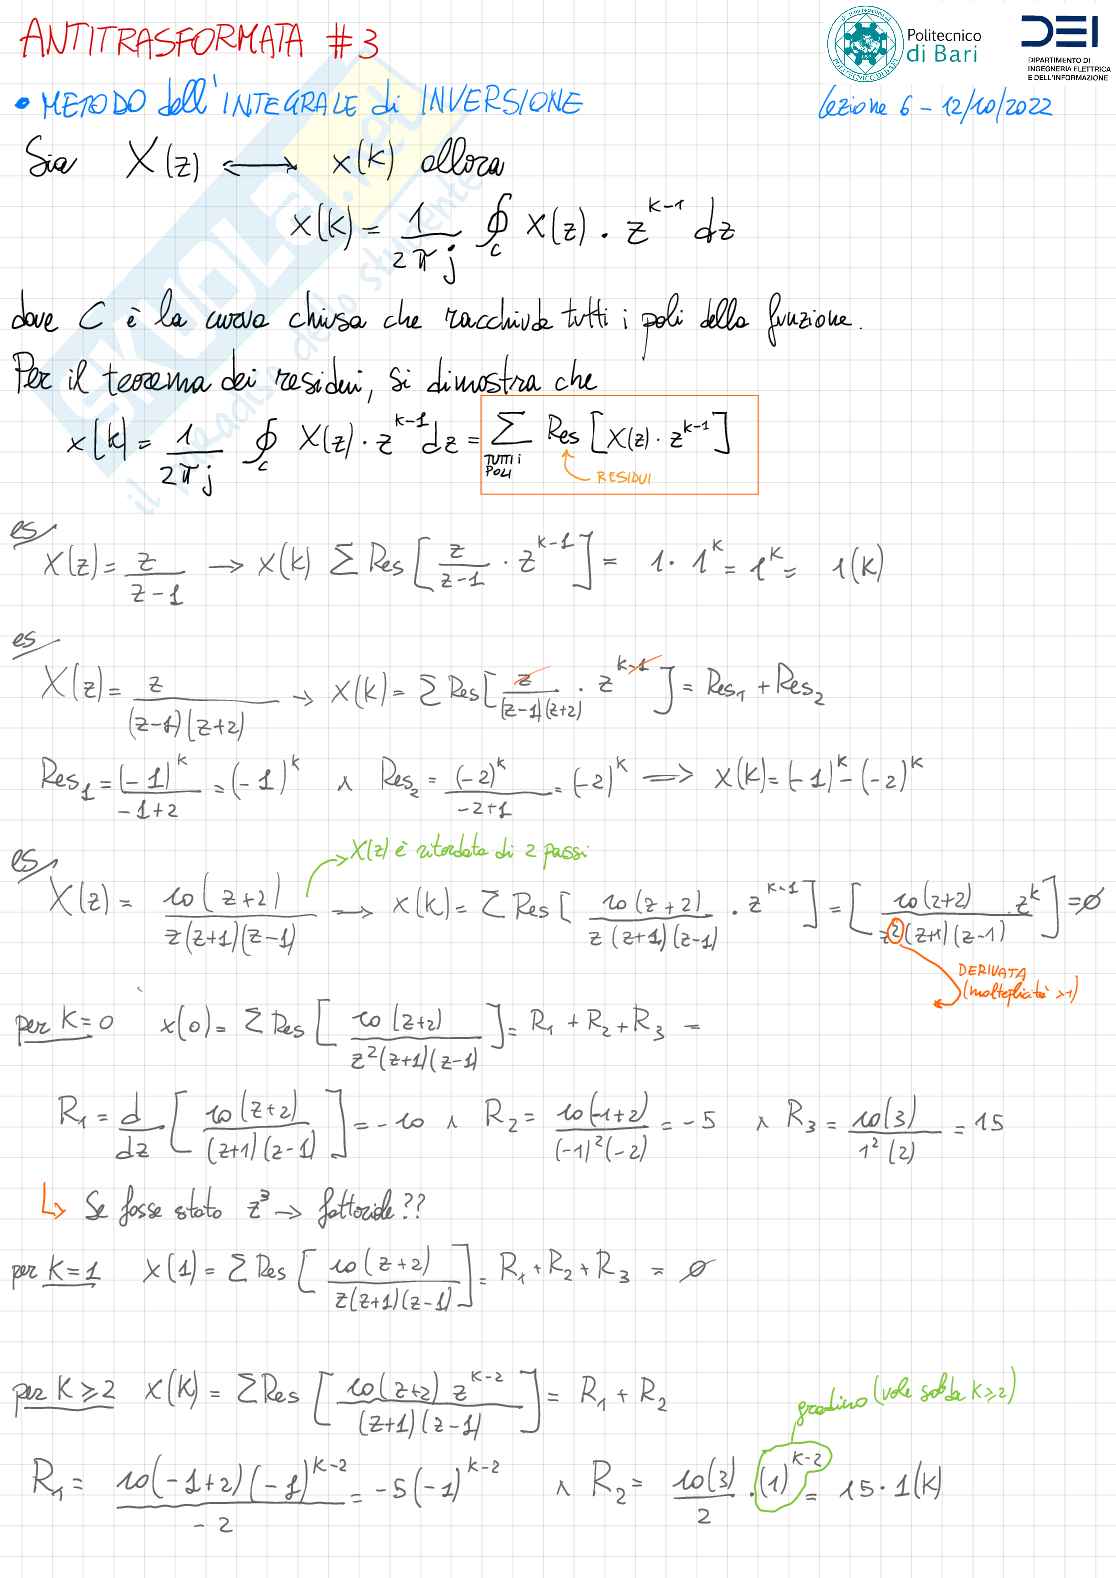 ANTITRASFORMATA #3
Politecnico di Bari
DEI
DIPARTIMENTO DI INGEGNERIA ELETTRICA E DELL'INFORMAZIONE
• METODO dell'INTEGRALE di INVERSIONE
Lezione 6 - 12/10/2022
Sia X(z) ⟷ x(k) allora
x(k) = 1/(2πj) ∮_C X(z) · z^(k-1) dz
dove C è la curva chiusa che racchiude tutti i poli della funzione.
Per il teorema dei residui, si dimostra che
x(k) = 1/(2πj) ∮_C X(z) · z^(k-1) dz = Σ_(TUTTI i POLI) Res [X(z) · z^(k-1)]
RESIDUI
es
X(z) = z/(z-1) → x(k) Σ Res [z/(z-1) · z^(k-1)] = 1 · 1^k = 1^k = 1(k)
es
X(z) = z/((z-1)(z+2)) → x(k) = Σ Res [z/((z-1)(z+2)) · z^(k-1)] = Res₁ + Res₂
Res₁ = (-1)^k/(-1+2) = (-1)^k ∧ Res₂ = (-2)^k/(-2+1) = (-2)^k ⟹ x(k) = (-1)^k - (-2)^k
es
X(z) è ritardata di 2 passi
X(z) = 10(z+2)/(z(z+1)(z-1)) → x(k) = Σ Res [10(z+2)/(z(z+1)(z-1)) · z^(k-1)] = [10(z+2) z^k/(z²(z+1)(z-1))] = ∅
DERIVATA
(molteplicità >1)
per K=0 x(0) = Σ Res [10(z+2)/(z²(z+1)(z-1))] = R₁ + R₂ + R₃ =
R₁ = d/dz [10(z+2)/((z+1)(z-1))] = -10 ∧ R₂ = 10(-1+2)/((-1)²(-2)) = -5 ∧ R₃ = 10(3)/(1²(2)) = 15
↳ Se fosse stato z³ → fattoriale??
per K=1 x(1) = Σ Res [10(z+2)/(z(z+1)(z-1))] = R₁ + R₂ + R₃ = ∅
per K≥2 x(k) = Σ Res [10(z+2) z^(k-2)/((z+1)(z-1))] = R₁ + R₂
gradino (vale solo da K≥2)
R₁ = 10(-1+2)(-1)^(k-2)/(-2) = -5(-1)^(k-2) ∧ R₂ = 10(3)/2 · (1)^(k-2) = 15 · 1(k)
SKUOLA.net
il paradiso dello studente